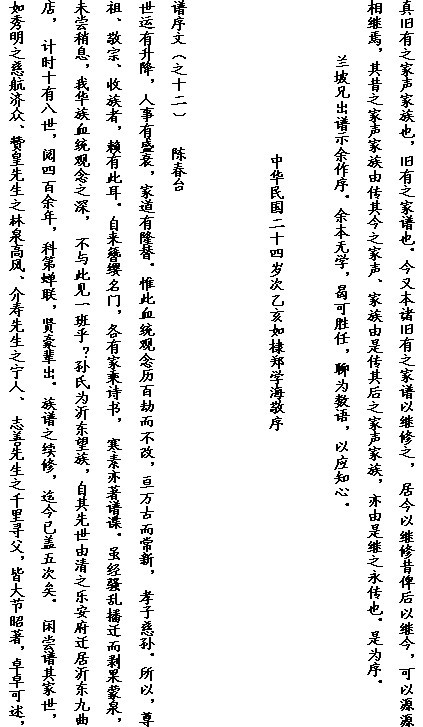 真旧有之家声家族也，旧有之家谱也。今又本诸旧有之家谱以继修之，居今以继修昔俾后以继今，可以源源
相继焉，其昔之家声家族由传其今之家声、家族由是传其后之家声家族，亦由是继之永传也。是为序。
兰坡兄出谱示余作序。余本无学，曷可胜任，聊为数语，以应知心。
中华民国二十四岁次乙亥如棣郑学海敬序
谱序文（之十二） 陈春台
世运有升降，人事有盛衰，家道有隆替。惟此血统观念历百劫而不改，亘万古而常新，孝子慈孙。所以，尊
祖、敬宗、收族者，赖有此耳。自来簪缨名门，各有家乘诗书，寒素亦著谱谍。虽经骚乱播迁而剥果蒙泉，
未尝稍息，我华族血统观念之深，不与此见一班乎？孙氏为沂东望族，自其先世由清之乐安府迁居沂东九曲
店，计时十有八世，阅四百余年，科第蝉联，贤豪辈出。族谱之续修，迄今已盖五次矣。闲尝谱其家世，
如秀明之慈航济众、赞皇先生之林泉高风、介寿先生之宁人、志善先生之千里寻父，皆大节昭著，卓卓可述，